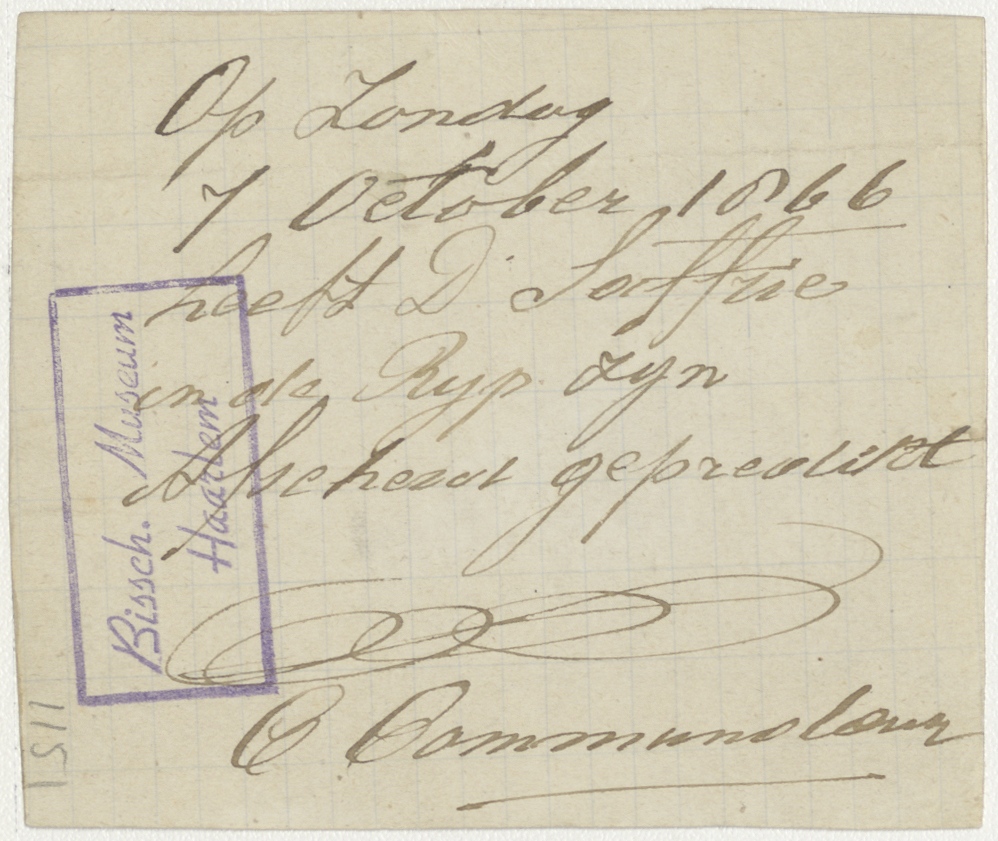 Op Zondag
7 October 1866
heeft D. Soffrie
in de Ryp zyn
Afscheid gepredikt
C Commandeur
Bissch. Museum
Haarlem
1511